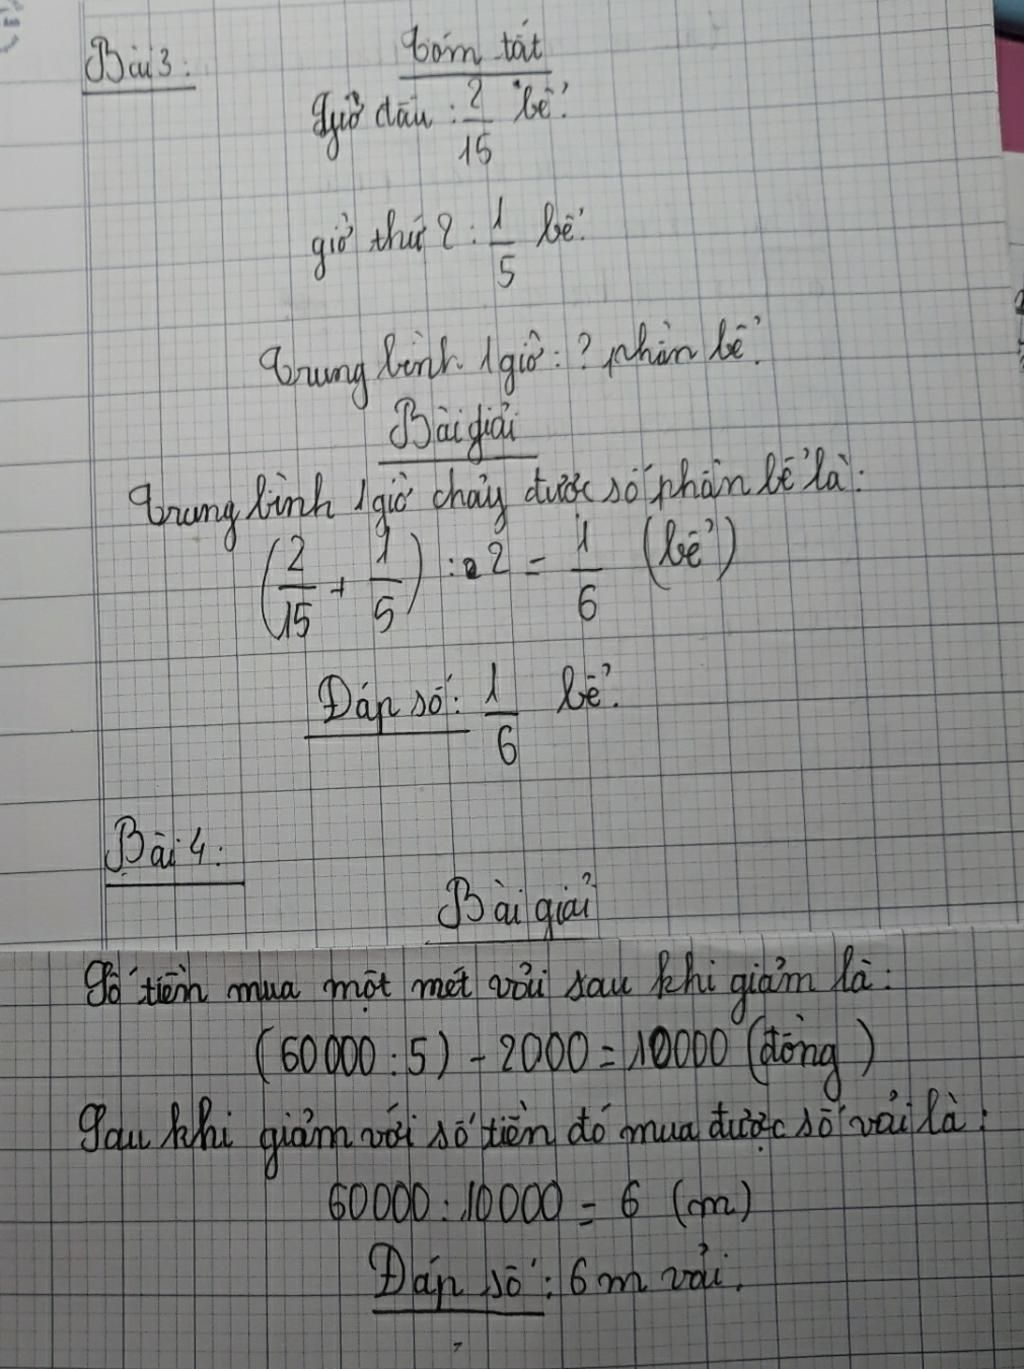 Bài 3:
Tóm tắt
Giờ đầu : 2/15 bể.
giờ thứ 2 : 1/5 bể.
Trung bình 1 giờ : ? phần bể.
Bài giải
Trung bình 1 giờ chảy được số phần bể là:
(2/15 + 1/5) : 2 = 1/6 (bể)
Đáp số: 1/6 bể.
Bài 4:
Bài giải
Số tiền mua một mét vải sau khi giảm là:
(60000 : 5) - 2000 = 10000 (đồng)
Sau khi giảm với số tiền đó mua được số vải là:
60000 : 10000 = 6 (m)
Đáp số: 6 m vải.